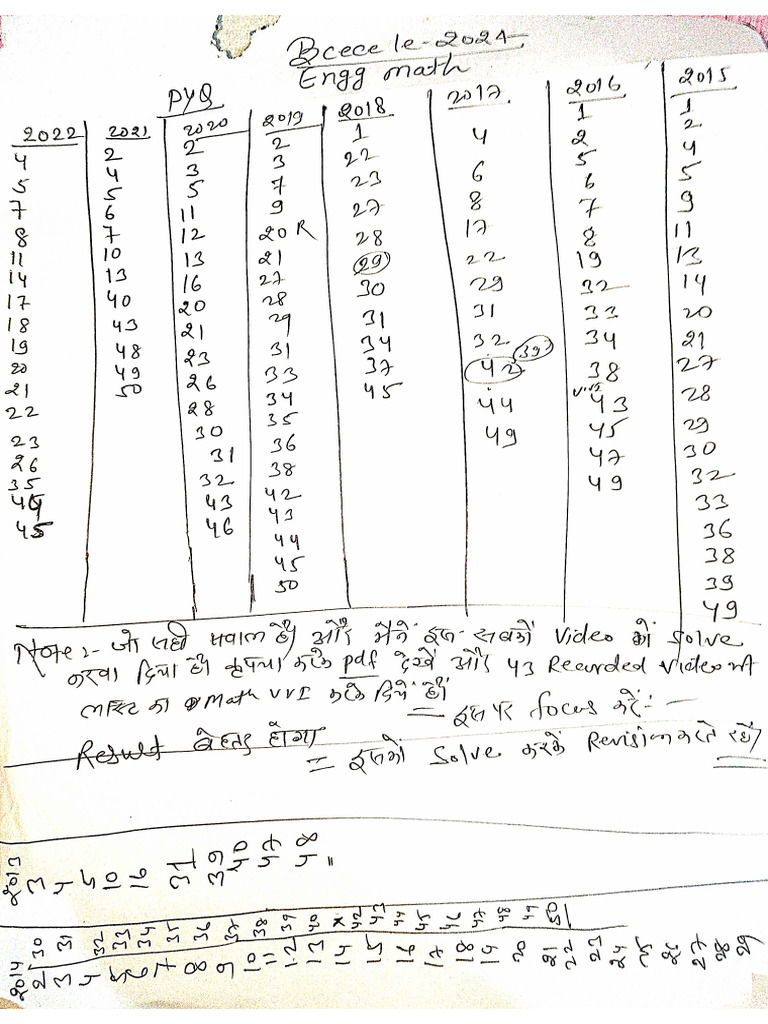 Bcece le-2024
Engg math
PYQ
2022
4
5
7
8
11
14
17
18
19
20
21
22
23
26
35
44
45
2021
2
4
5
6
7
10
13
40
43
48
49
50
2020
2
3
5
11
12
13
16
20
21
23
26
28
30
31
32
43
46
2019
2
3
7
9
20 R
21
27
28
29
31
33
34
35
36
38
42
43
44
45
50
2018
1
22
23
27
28
29
30
31
34
37
45
2017
4
6
8
17
22
29
31
32 39
42
44
49
2016
1
2
5
6
7
8
19
32
33
34
38
43
45
47
49
2015
1
2
4
5
9
11
13
14
20
21
27
28
29
30
32
33
36
38
39
49
Note :- जो सही सवाल है। और मैंने इस सबको Video को Solve
करवा दिया है। कृपया करके pdf देखें और 43 Recorded Video भी
का Math VVI करके दिये है।
= इस पर focus करें:-
Result बेहतर होगा
= इसको Solve करके Revision करते रहें।
2013
2014
30 31 32 33 34 35 36 37 38 39 40 x 42 43 44 45 46 47 48 49 50
2 3 4 5 6 7 8 9 10 11 12 13 14 15 16 17 18 19 20 21 22 23 24 25 26 27 28 29